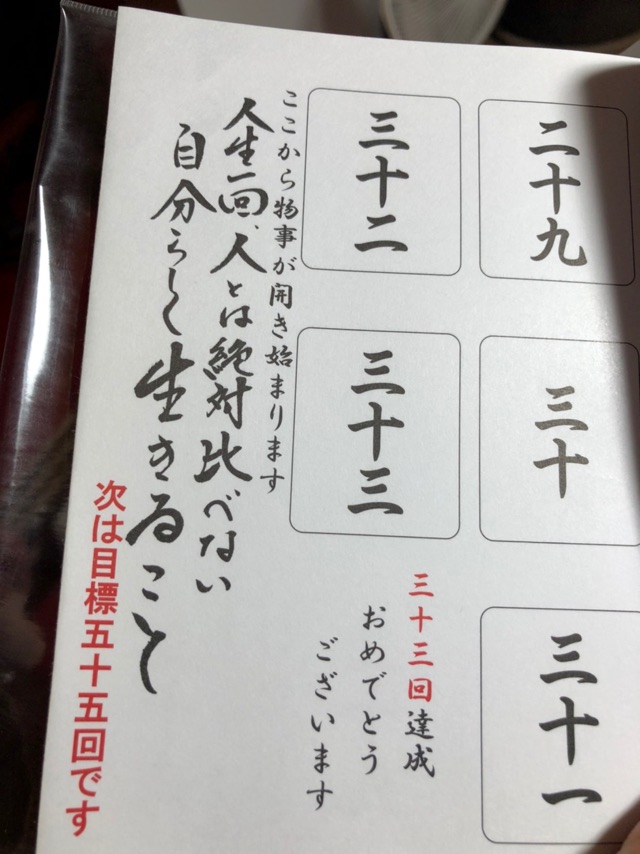 二十九
三十
三十一
三十二
三十三
三十三回達成
おめでとう
ございます
ここから物事が開き始まります
人生一回、人とは絶対比べない
自分らしく生きること
次は目標五十五回です